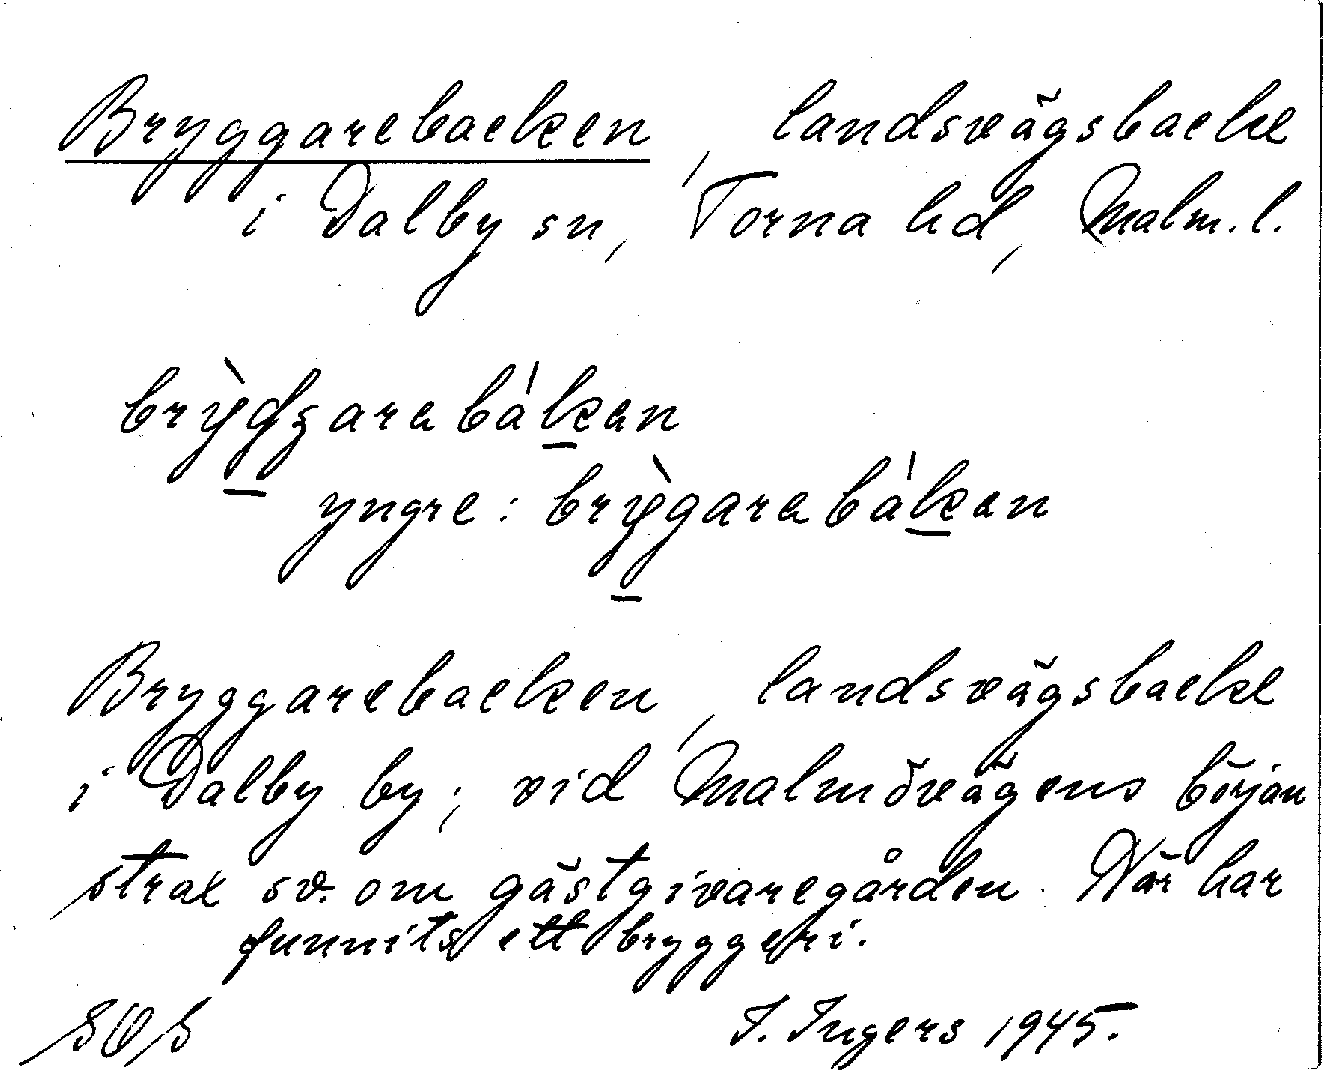 Bryggarebacken, landsvägsbacke
i Dalby sn, Torna hd, Malm. l.
brỳdʒarabákan
yngre: brỳgarabákan
Bryggarebacken, landsvägsbacke
i Dalby by; vid Malmövägens början
strax sv. om gästgivaregården. Här har
funnits ett bryggeri.
SOS I. Ingers 1945.